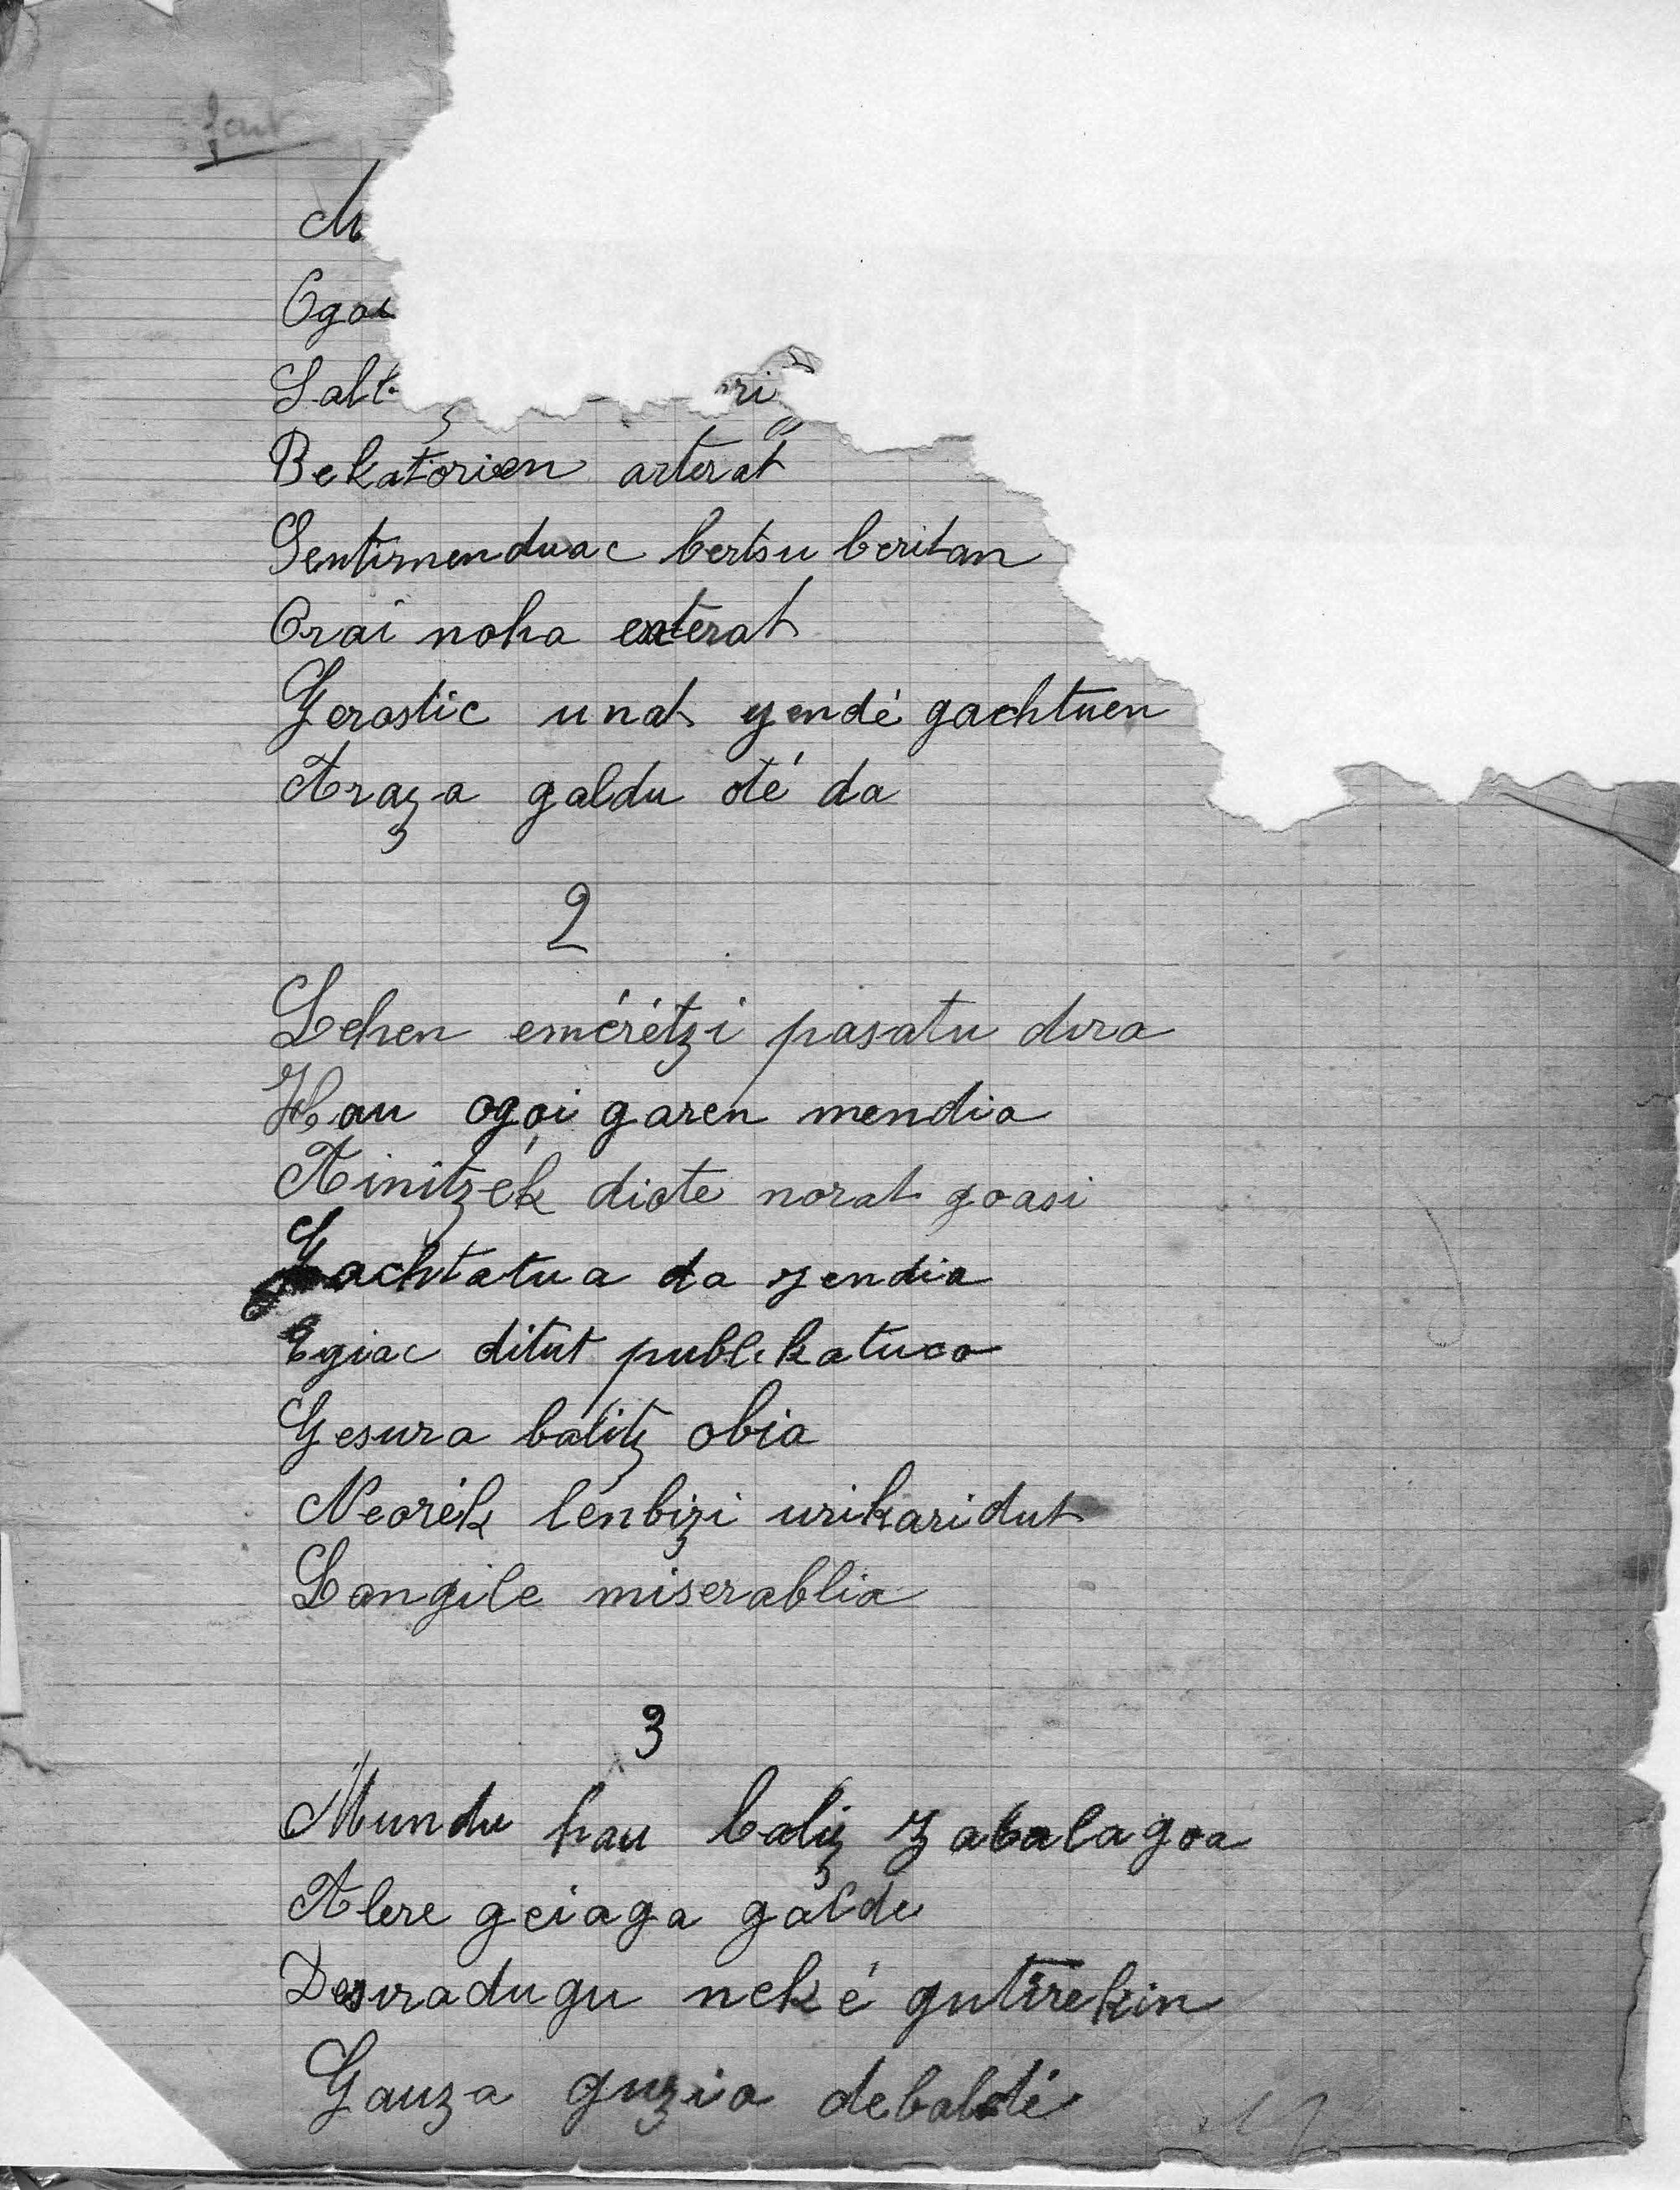 Bekatorien arterat
Sentimenduac bertsu beritan
Orai noha exterat
Gerostic unat yendé gachtuen
Araza galdu oté da
2
Lehen emérétzi pasatu dira
Hau ogoi garen mendia
Ainitzek diote norat goasi
Gachtatua da zendia
Egiac ditut publikatuco
Gesura balitz obia
Neorék lénbizi urikaridut
Langile miserablia
3
Mundu hau baliz zabalagoa
Alere geiaga galde
Desiradugu neké gutirekin
Gauza guzia debaldé